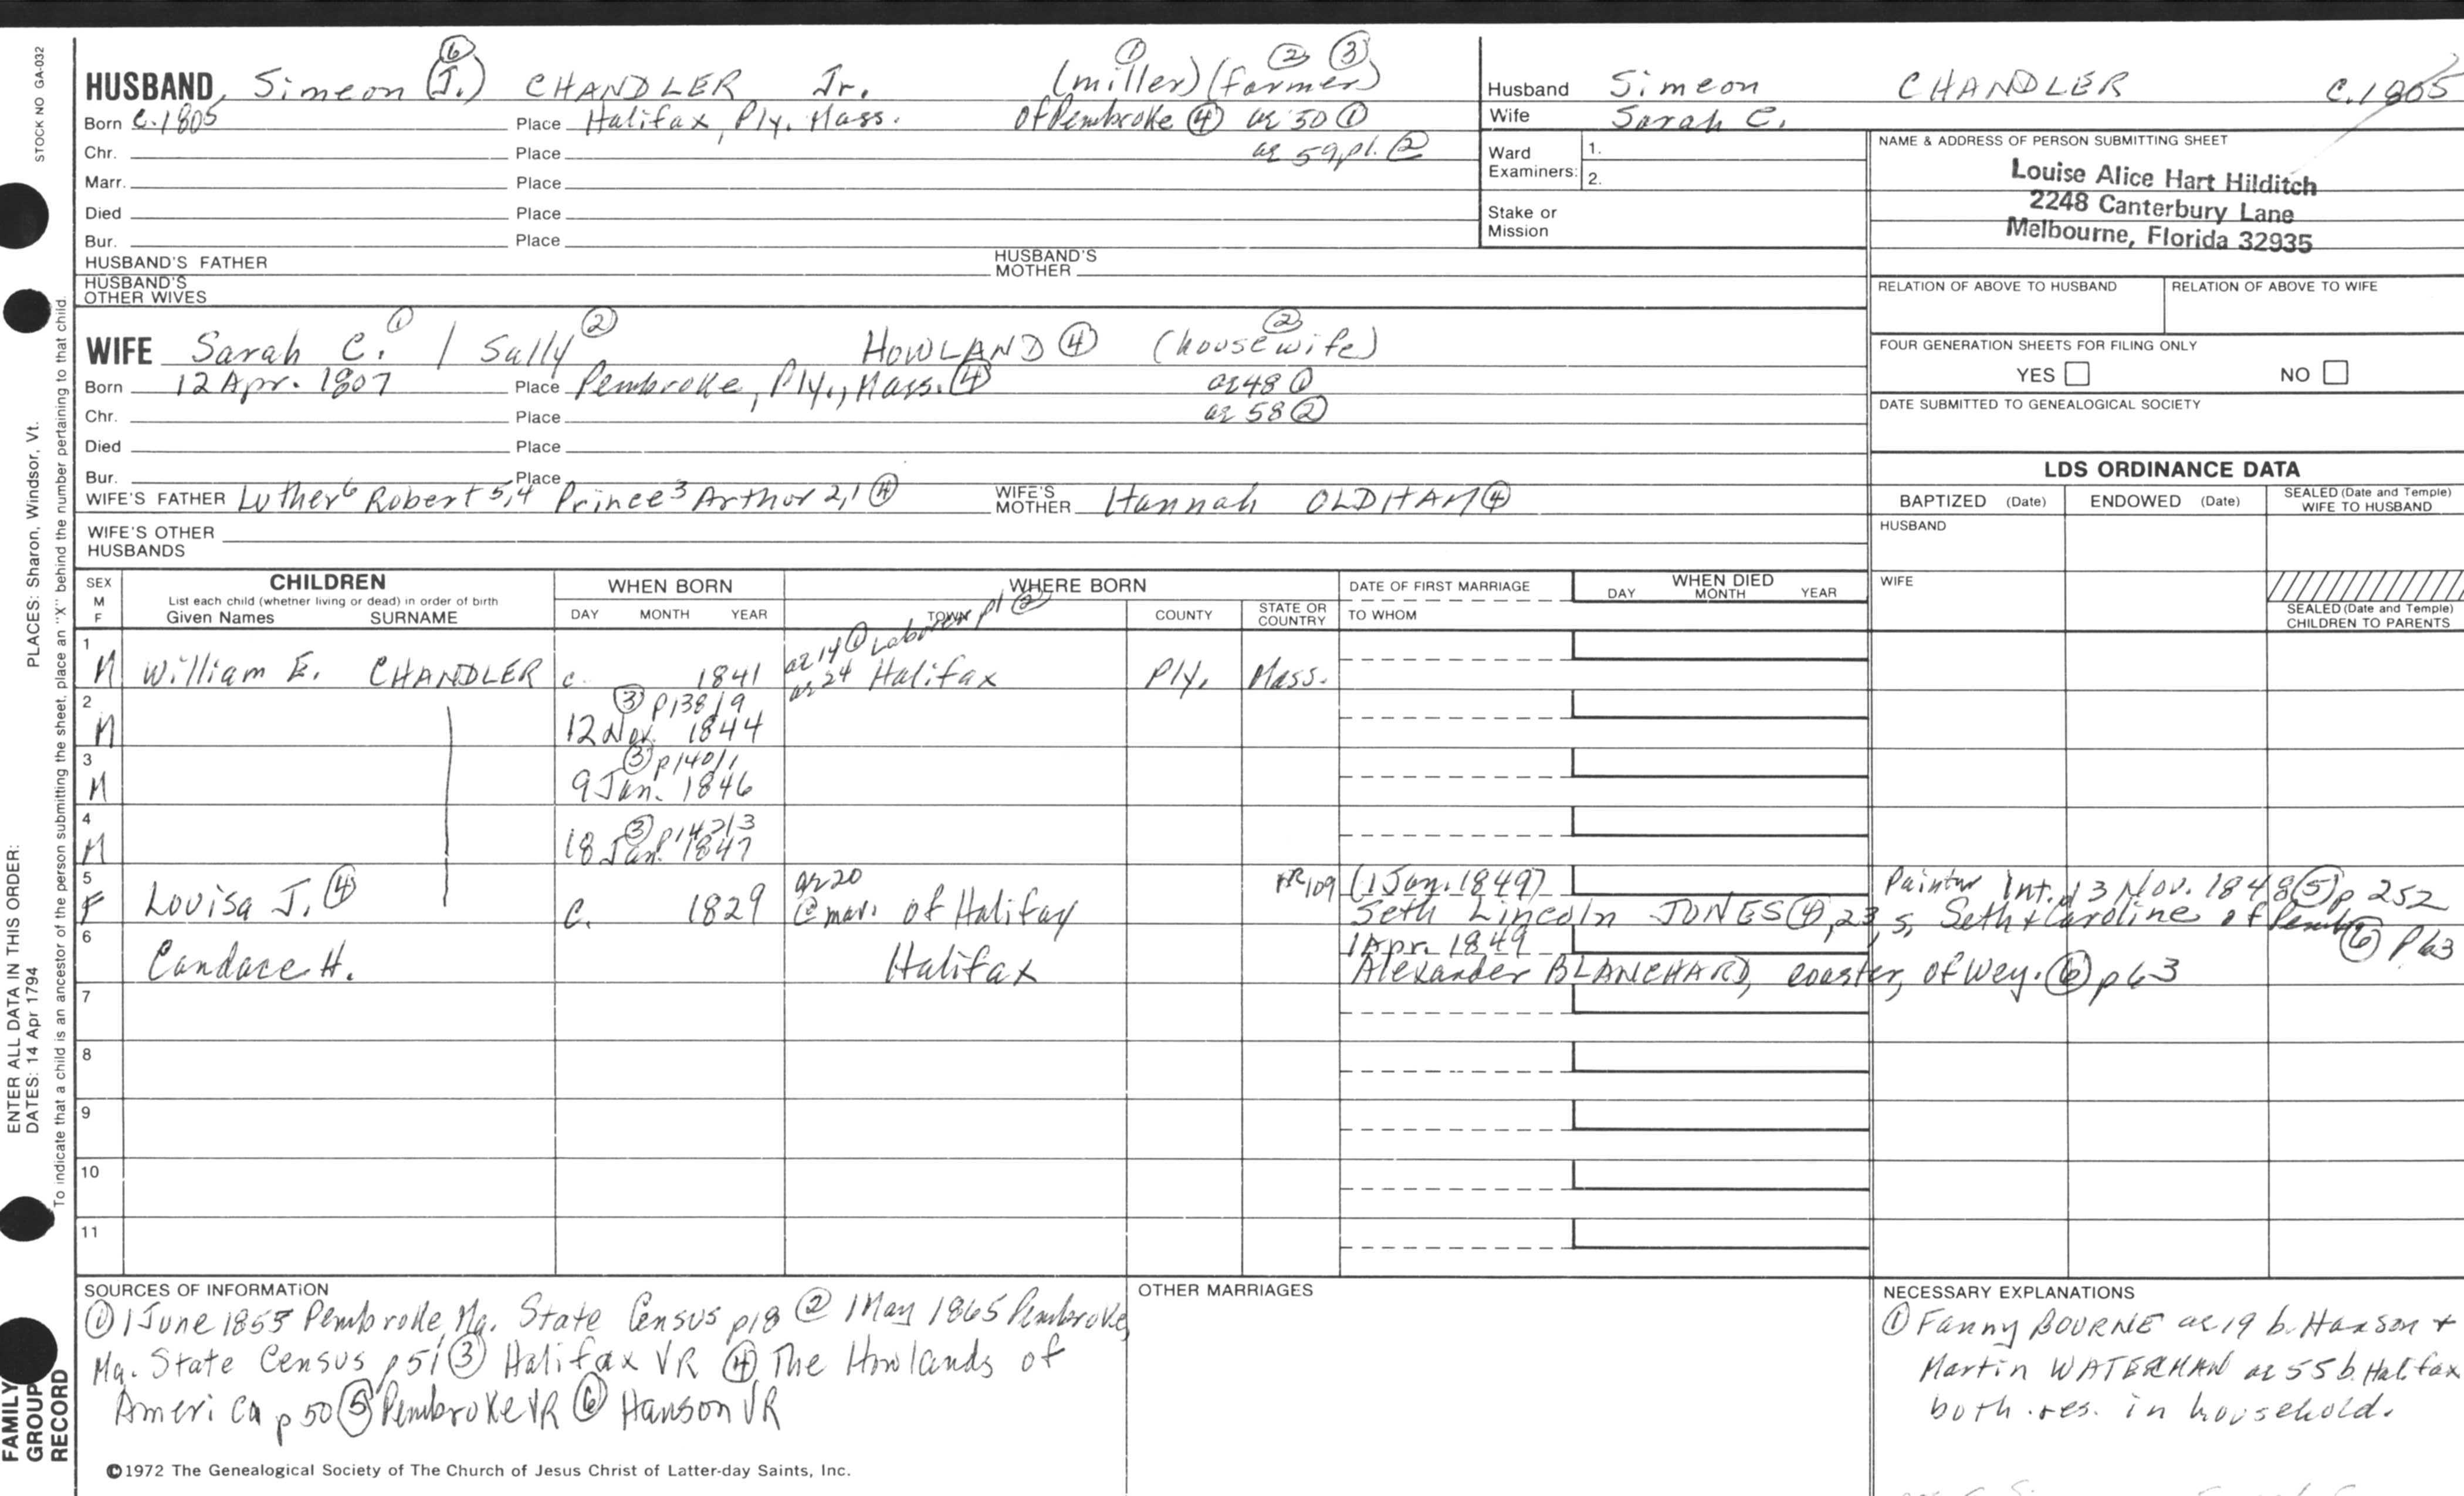 STOCK NO GA-032
PLACES: Sharon, Windsor, Vt.
ENTER ALL DATA IN THIS ORDER:
DATES: 14 Apr 1794
To indicate that a child is an ancestor of the person submitting the sheet, place an "X" behind the number pertaining to that child.
FAMILY GROUP RECORD
⑥ ① ② ③
HUSBAND Simeon (J.) CHANDLER Jr. (miller) (farmer)
Born c. 1805 Place Halifax, Ply. Mass. of Pembroke ④ ae 50 ①
Chr. Place ae 59, pl. ②
Marr. Place
Died Place
Bur. Place
HUSBAND'S FATHER HUSBAND'S MOTHER
HUSBAND'S OTHER WIVES
Husband Simeon CHANDLER c. 1805
Wife Sarah C.
Ward Examiners: 1.
2.
Stake or Mission
NAME & ADDRESS OF PERSON SUBMITTING SHEET
Louise Alice Hart Hilditch
2248 Canterbury Lane
Melbourne, Florida 32935
RELATION OF ABOVE TO HUSBAND RELATION OF ABOVE TO WIFE
FOUR GENERATION SHEETS FOR FILING ONLY
YES NO
DATE SUBMITTED TO GENEALOGICAL SOCIETY
① ② ②
WIFE Sarah C. / Sally HOWLAND ④ (housewife)
Born 12 Apr. 1807 Place Pembroke, Ply., Mass. ④ ae 48 ①
Chr. Place ae 58 ②
Died Place
Bur. Place
WIFE'S FATHER Luther6 Robert 5,4 Prince3 Arthur 2,1 ④ WIFE'S MOTHER Hannah OLDHAM ④
WIFE'S OTHER HUSBANDS
LDS ORDINANCE DATA
BAPTIZED (Date) ENDOWED (Date) SEALED (Date and Temple) WIFE TO HUSBAND
HUSBAND
WIFE
SEALED (Date and Temple) CHILDREN TO PARENTS
SEX M F CHILDREN
List each child (whether living or dead) in order of birth
Given Names SURNAME
WHEN BORN DAY MONTH YEAR
WHERE BORN TOWN COUNTY STATE OR COUNTRY
DATE OF FIRST MARRIAGE TO WHOM
WHEN DIED DAY MONTH YEAR
ae 14 ① Laborer pl ②
1 M William E. CHANDLER c. 1841 ae 24 Halifax Ply. Mass.
③ p 138/9
2 M 12 Nov. 1844
③ p 140/1
3 M 9 Jan. 1846
③ p 142/3
4 M 18 Jan. 1847
5 F Louisa J. ④ c. 1829 ae 20 @ mar. of Halifax HR109 (1 Jan. 1849) Painter Int. 13 Nov. 1848 ⑤ p 252
Seth Lincoln JONES ④, 23, s. Seth & Caroline of Pemb. ⑥ P 63
6 Candace H. Halifax 1 Apr. 1849
Alexander BLANCHARD, coaster, of Wey. ⑥ p 63
7
8
9
10
11
SOURCES OF INFORMATION
① 1 June 1855 Pembroke, Ma. State Census p18 ② 1 May 1865 Pembroke,
Ma. State Census p 51 ③ Halifax VR ④ The Howlands of
America p 50 ⑤ Pembroke VR ⑥ Hanson VR
OTHER MARRIAGES
NECESSARY EXPLANATIONS
① Fanny BOURNE ae 19 b. Hanson +
Martin WATERMAN ae 55 b. Halifax
both res. in household.
©1972 The Genealogical Society of The Church of Jesus Christ of Latter-day Saints, Inc.